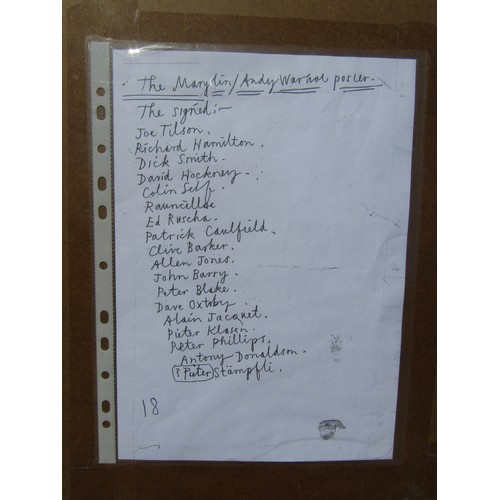 The Marylin/Andy Warhol poster.
The signed:-
Joe Tilson.
Richard Hamilton.
Dick Smith.
David Hockney.
Colin Self.
Rauncillac
Ed Ruscha.
Patrick Caulfield.
Clive Barker.
Allen Jones.
John Barry.
Peter Blake.
Dave Oxtoby.
Alain Jacquet.
Pieter Klasen.
Peter Phillips.
Antony Donaldson.
? Pieter Stämpfli.
18